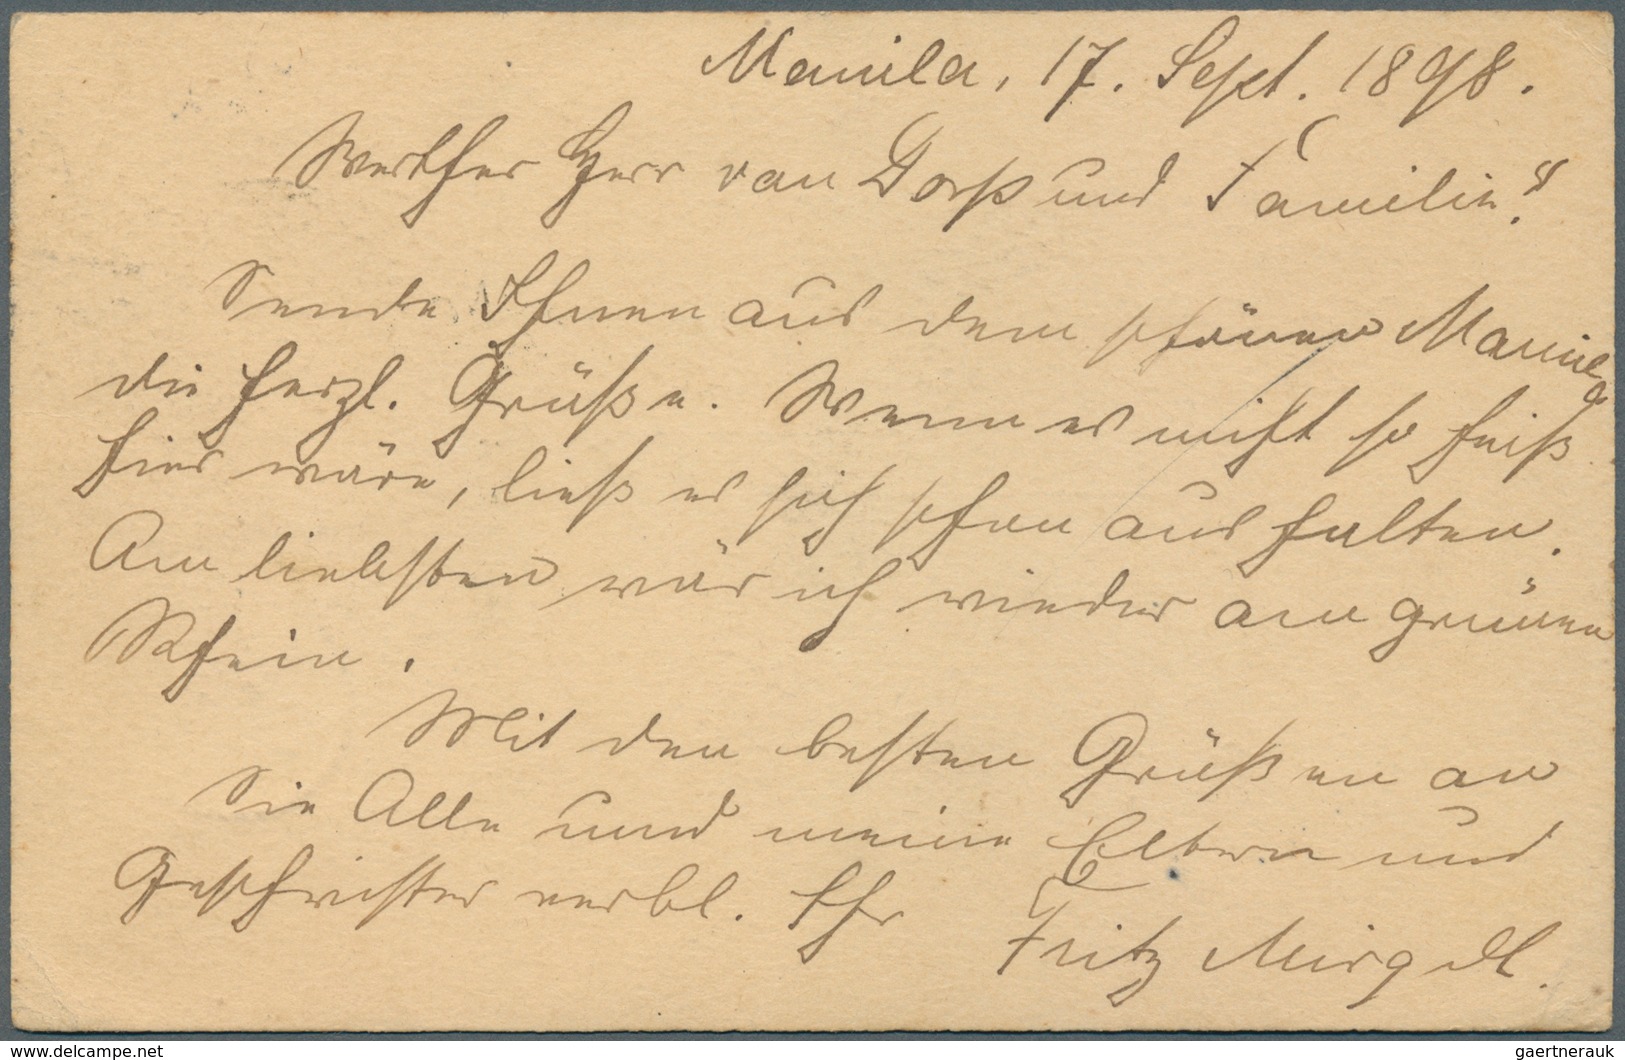 Manila, 17. Sept. 1898.
Werther Herr van und Familie!
Sende Ihnen aus dem schönen Manila
die herzl. Grüße. Wenn es nicht so heiß
hier wäre, ließ es sich schon aushalten.
Am liebsten wär ich wieder am grünen
Rhein.
Mit den besten Grüßen an
Sie Alle und meine Eltern und
Geschwister verbl. Ihr
Fritz
delcampe.net
gaertnerauk